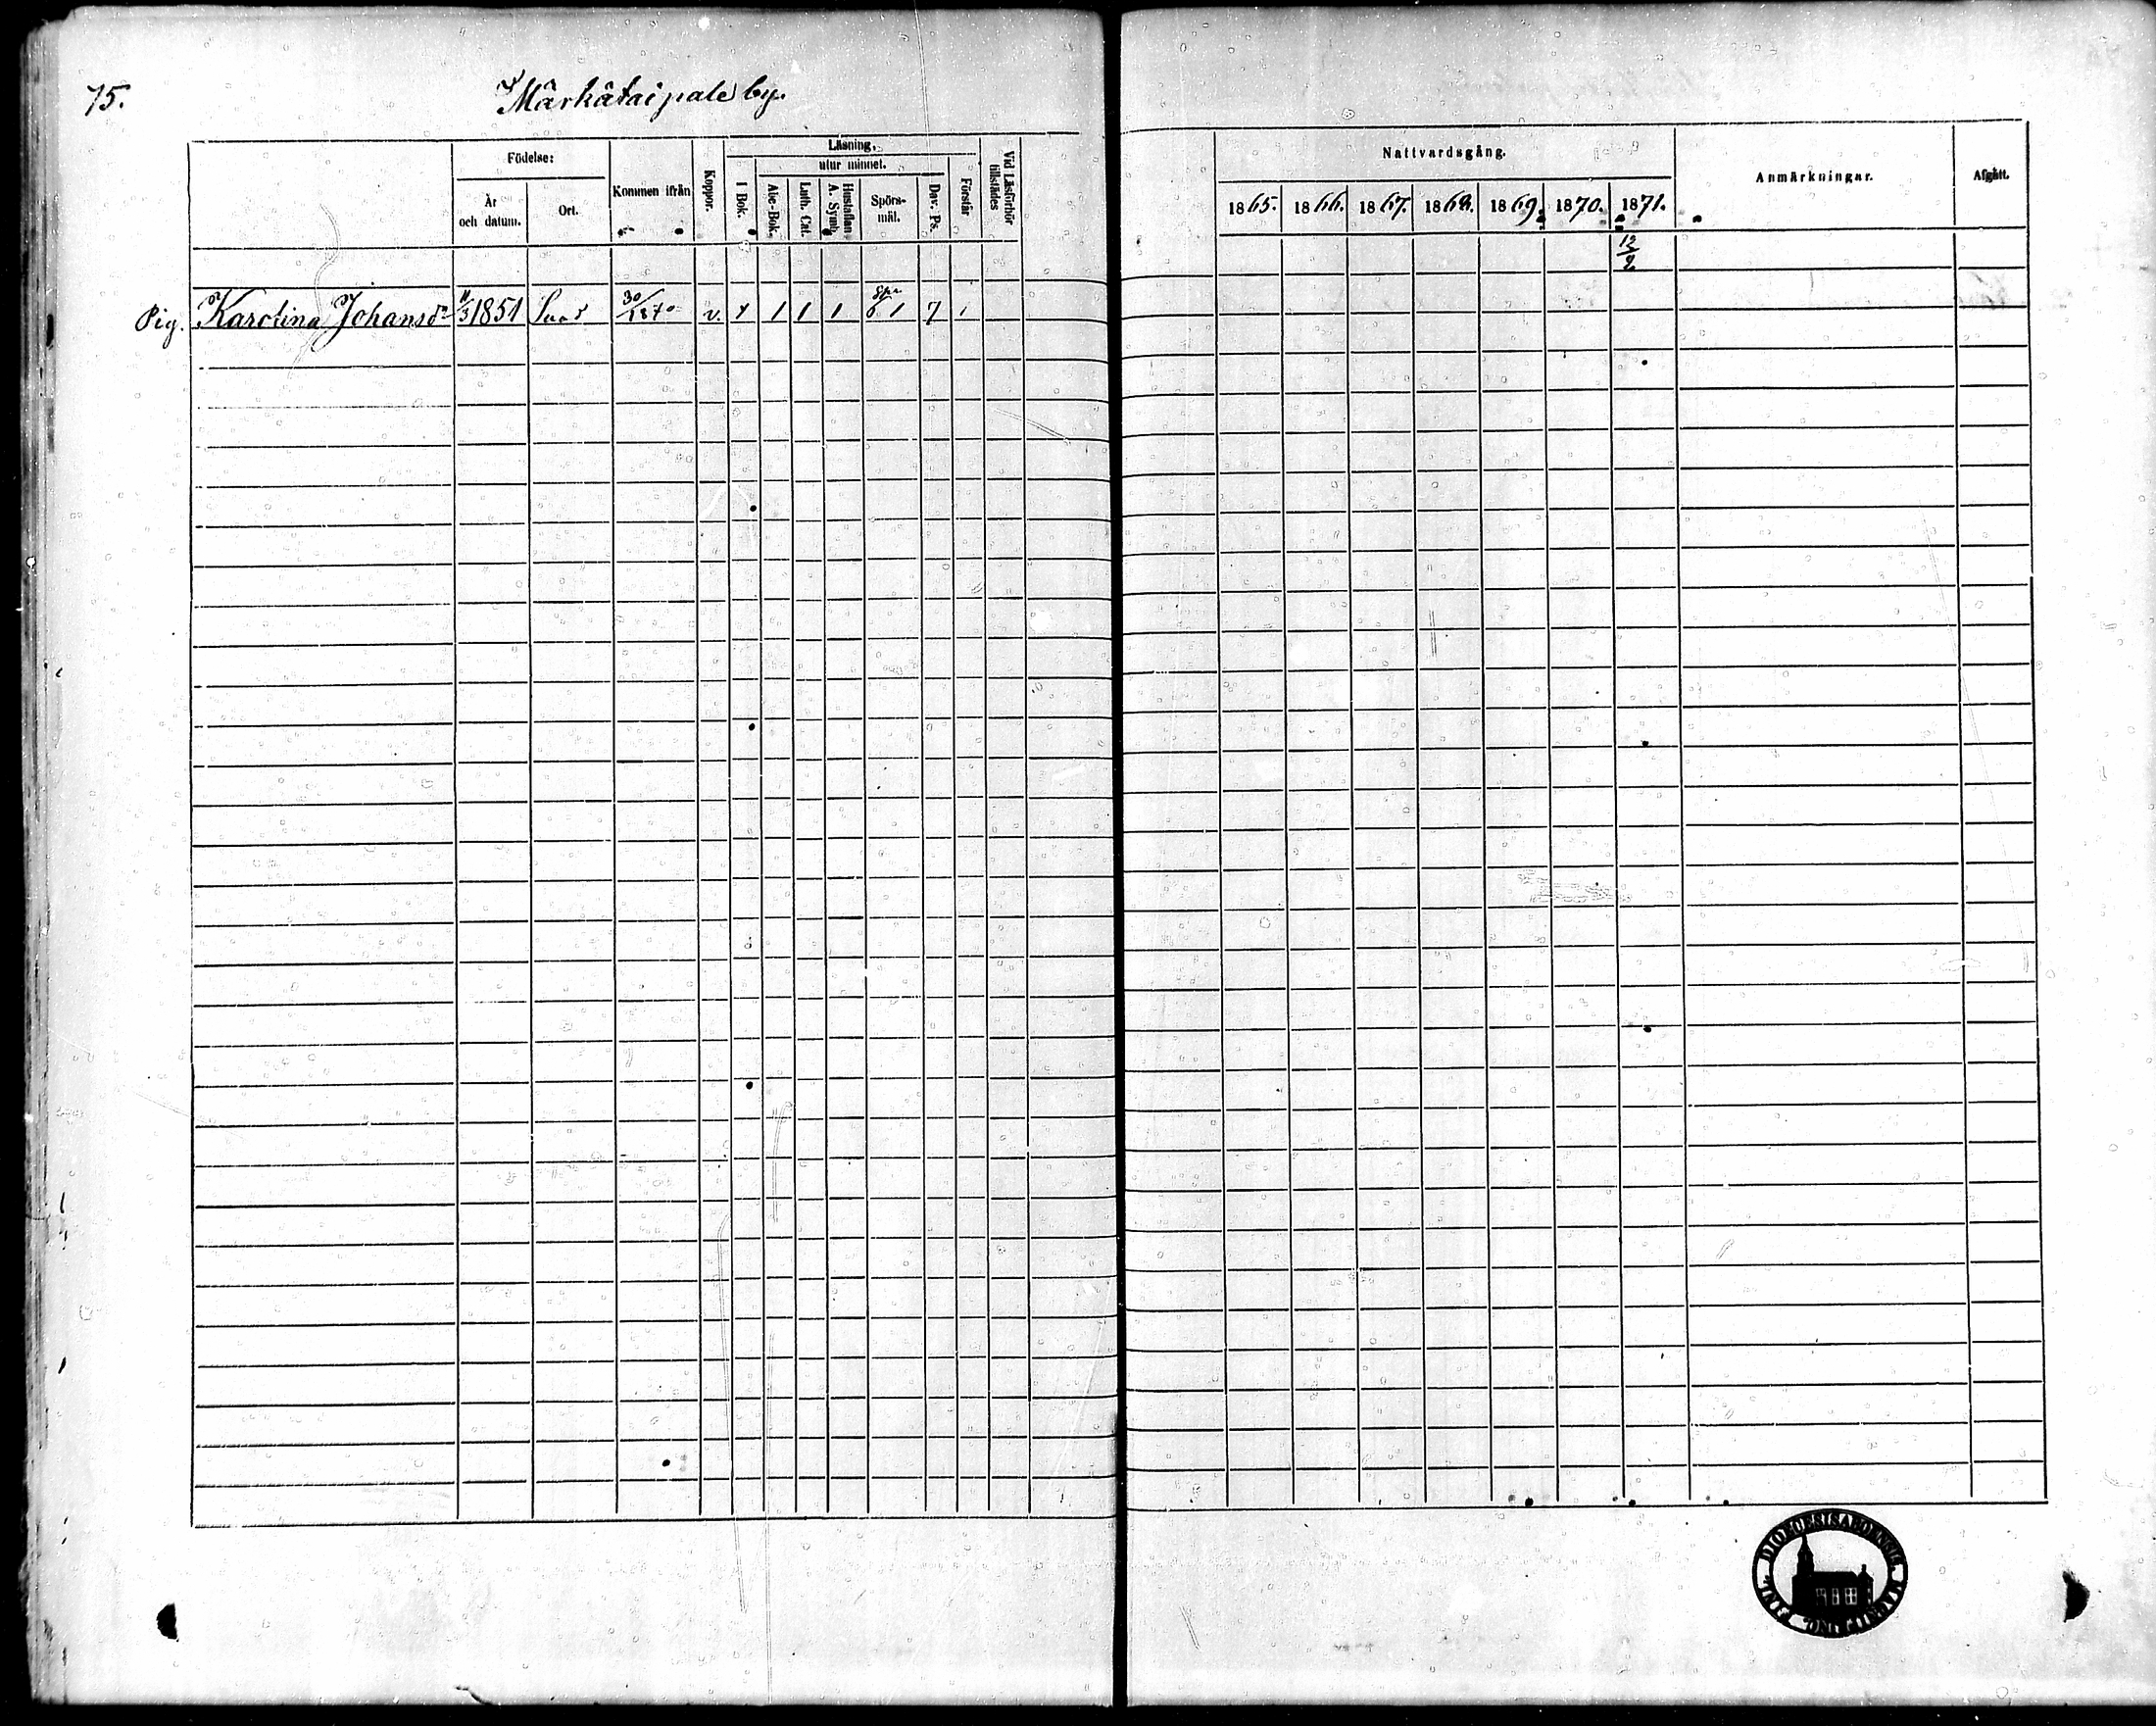 75.
Märkätaipale by.
Födelse:
År och datum.
Ort.
Kommen ifrån
Koppor.
Läsning,
utur minnet.
I Bok.
Abc-Bok.
Luth. Cat.
Hustaflan A. Symb.
Spörsmål.
Dav. Ps.
Förstår
Vid Läsförhör tillstädes
Nattvardsgång.
1865. 1866. 1867. 1868. 1869. 1870. 1871.
Anmärkningar.
Afgått.
12/2
Pig. Karolina Johansdr 11/3 1851 30/1870 v. 1 1 1 1 7 1
DIOECESIS ABOENSIS
FINL.